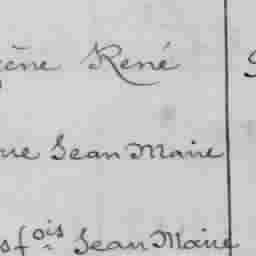 ène René
rre Jean Marie
sfois Jean Marie